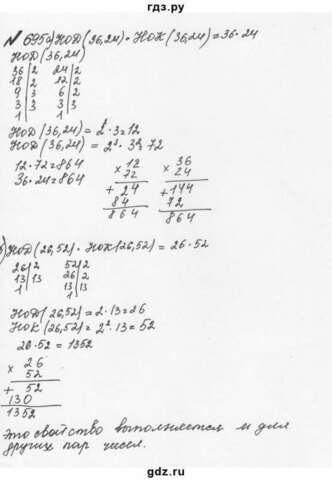 гдз.ру
№ 695а) НОД (36,24) · НОК (36,24) = 36 · 24
НОД (36,24)
36 | 2 24 | 2
18 | 2 12 | 2
9 | 3 6 | 2
3 | 3 3 | 3
1 | 1 |
НОД (36,24) = 2² · 3 = 12
НОД (36,24) = 2³ · 3² 72
12 · 72 = 864
36 · 24 = 864
× 12
72
+ 24
84
864
× 36
24
+ 144
72
864
б) НОД (26,52) · НОК (26,52) = 26 · 52
26 | 2 52 | 2
13 | 13 26 | 2
1 | 13 | 13
1
НОД (26,52) = 2 · 13 = 26
НОК (26,52) = 2² · 13 = 52
26 · 52 = 1352
× 26
52
+ 52
130
1352
Это свойство выполняется и для
других пар чисел.
gdz.ru